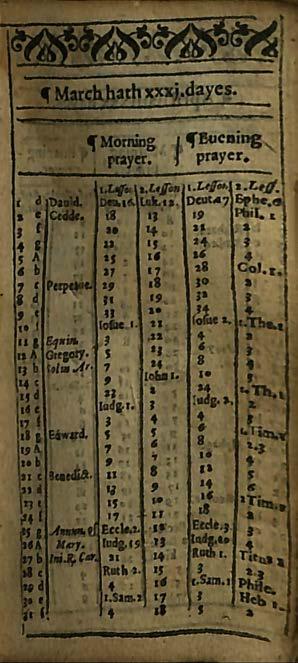 ¶ March hath xxxj. dayes.
¶ Morning prayer. ¶ Euening prayer.
1. Lesson 2. Lesson 1. Lesson. 2. Less.
1 d Dauid. Deu. 16. Luk. 12. Deut. 17 Ephe. 6
2 e Cedde. 18 13 19 Phil. 1
3 f 20 14 21 2
4 g 22 15 24 3
5 A 25 16 26 4
6 b 27 17 28 Col. 1.
7 c Perpetue. 29 18 30 2
8 d 31 19 32 3
9 e 33 20 34 4
10 f Iosue 1. 21 Iosue 2. 1. The. 1
11 g Equin. 3
12 A Gregory. 5 23 6
13 b Solin Ar. 7 24 8
14 c 9 Iohn 1. 10
15 d 23 2 24 1. Th. 1
16 e Iudg. 1. 3 Iudg. 2. 2
17 f 3 4 4
18 g Edward. 5 5 6 1. Tim. 1
19 A 7 6 8 2.3
20 b 9 7 10 4
21 c Benedict. 11 8 12 5
22 d 13 9 14 6
23 e 15 10 16 2 Tim. 1
24 f 17 11 18 2
25 g Annun. of Eccle. 2. 12 Eccle. 3. 3
26 A Mary. Iudg. 19 13 Iudg. 20 4
27 b Ini. R. Car. 21 14 Ruth 1. Titus 1
28 c Ruth 2. 15 3 2.3
29 d 4 16 1. Sam. 1 Phile.
30 e 1. Sam. 2 17 3 Heb 1.
31 f 4 18 5 2